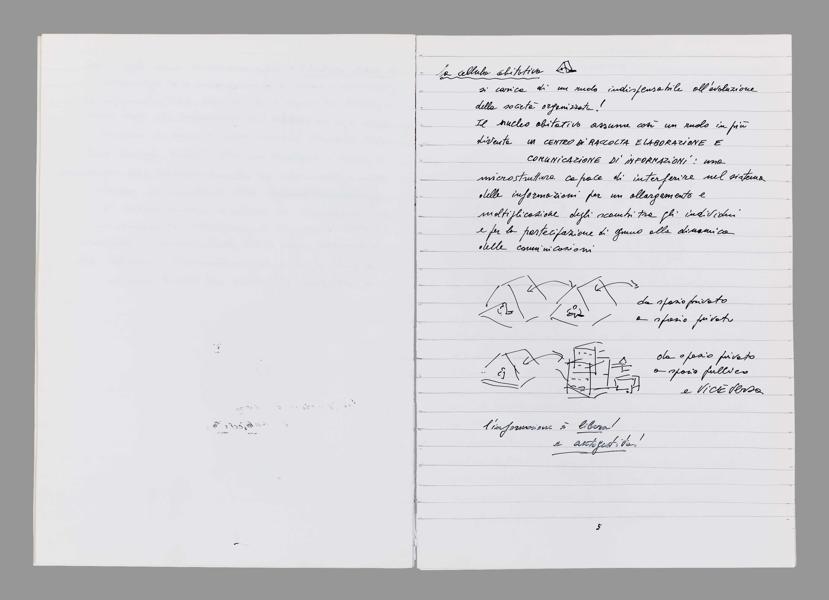 la cellula abitativa
si carica di un ruolo indispensabile all'evoluzione
della società organizzata!
Il nucleo abitativo assume così un ruolo in più
diventa un CENTRO DI RACCOLTA ELABORAZIONE E
COMUNICAZIONE DI INFORMAZIONI: una
microstruttura capace di interferire nel sistema
delle informazioni per un allargamento e
moltiplicazione degli scambi tra gli individui
e per la partecipazione di ognuno alla dinamica
delle comunicazioni
da spazio privato
a spazio privato
da spazio privato
a spazio pubblico
e VICEVERSA
l'informazione è libera!
e autogestita!
5